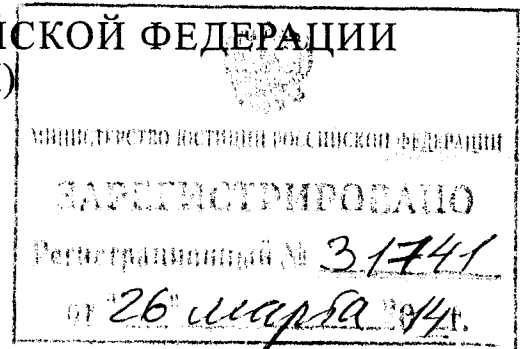 СКОЙ ФЕДЕРАЦИИ
)
МИНИСТЕРСТВО ЮСТИЦИИ РОССИЙСКОЙ ФЕДЕРАЦИИ
ЗАРЕГИСТРИРОВАНО
Регистрационный № 31741
от "26" марта 2014г.